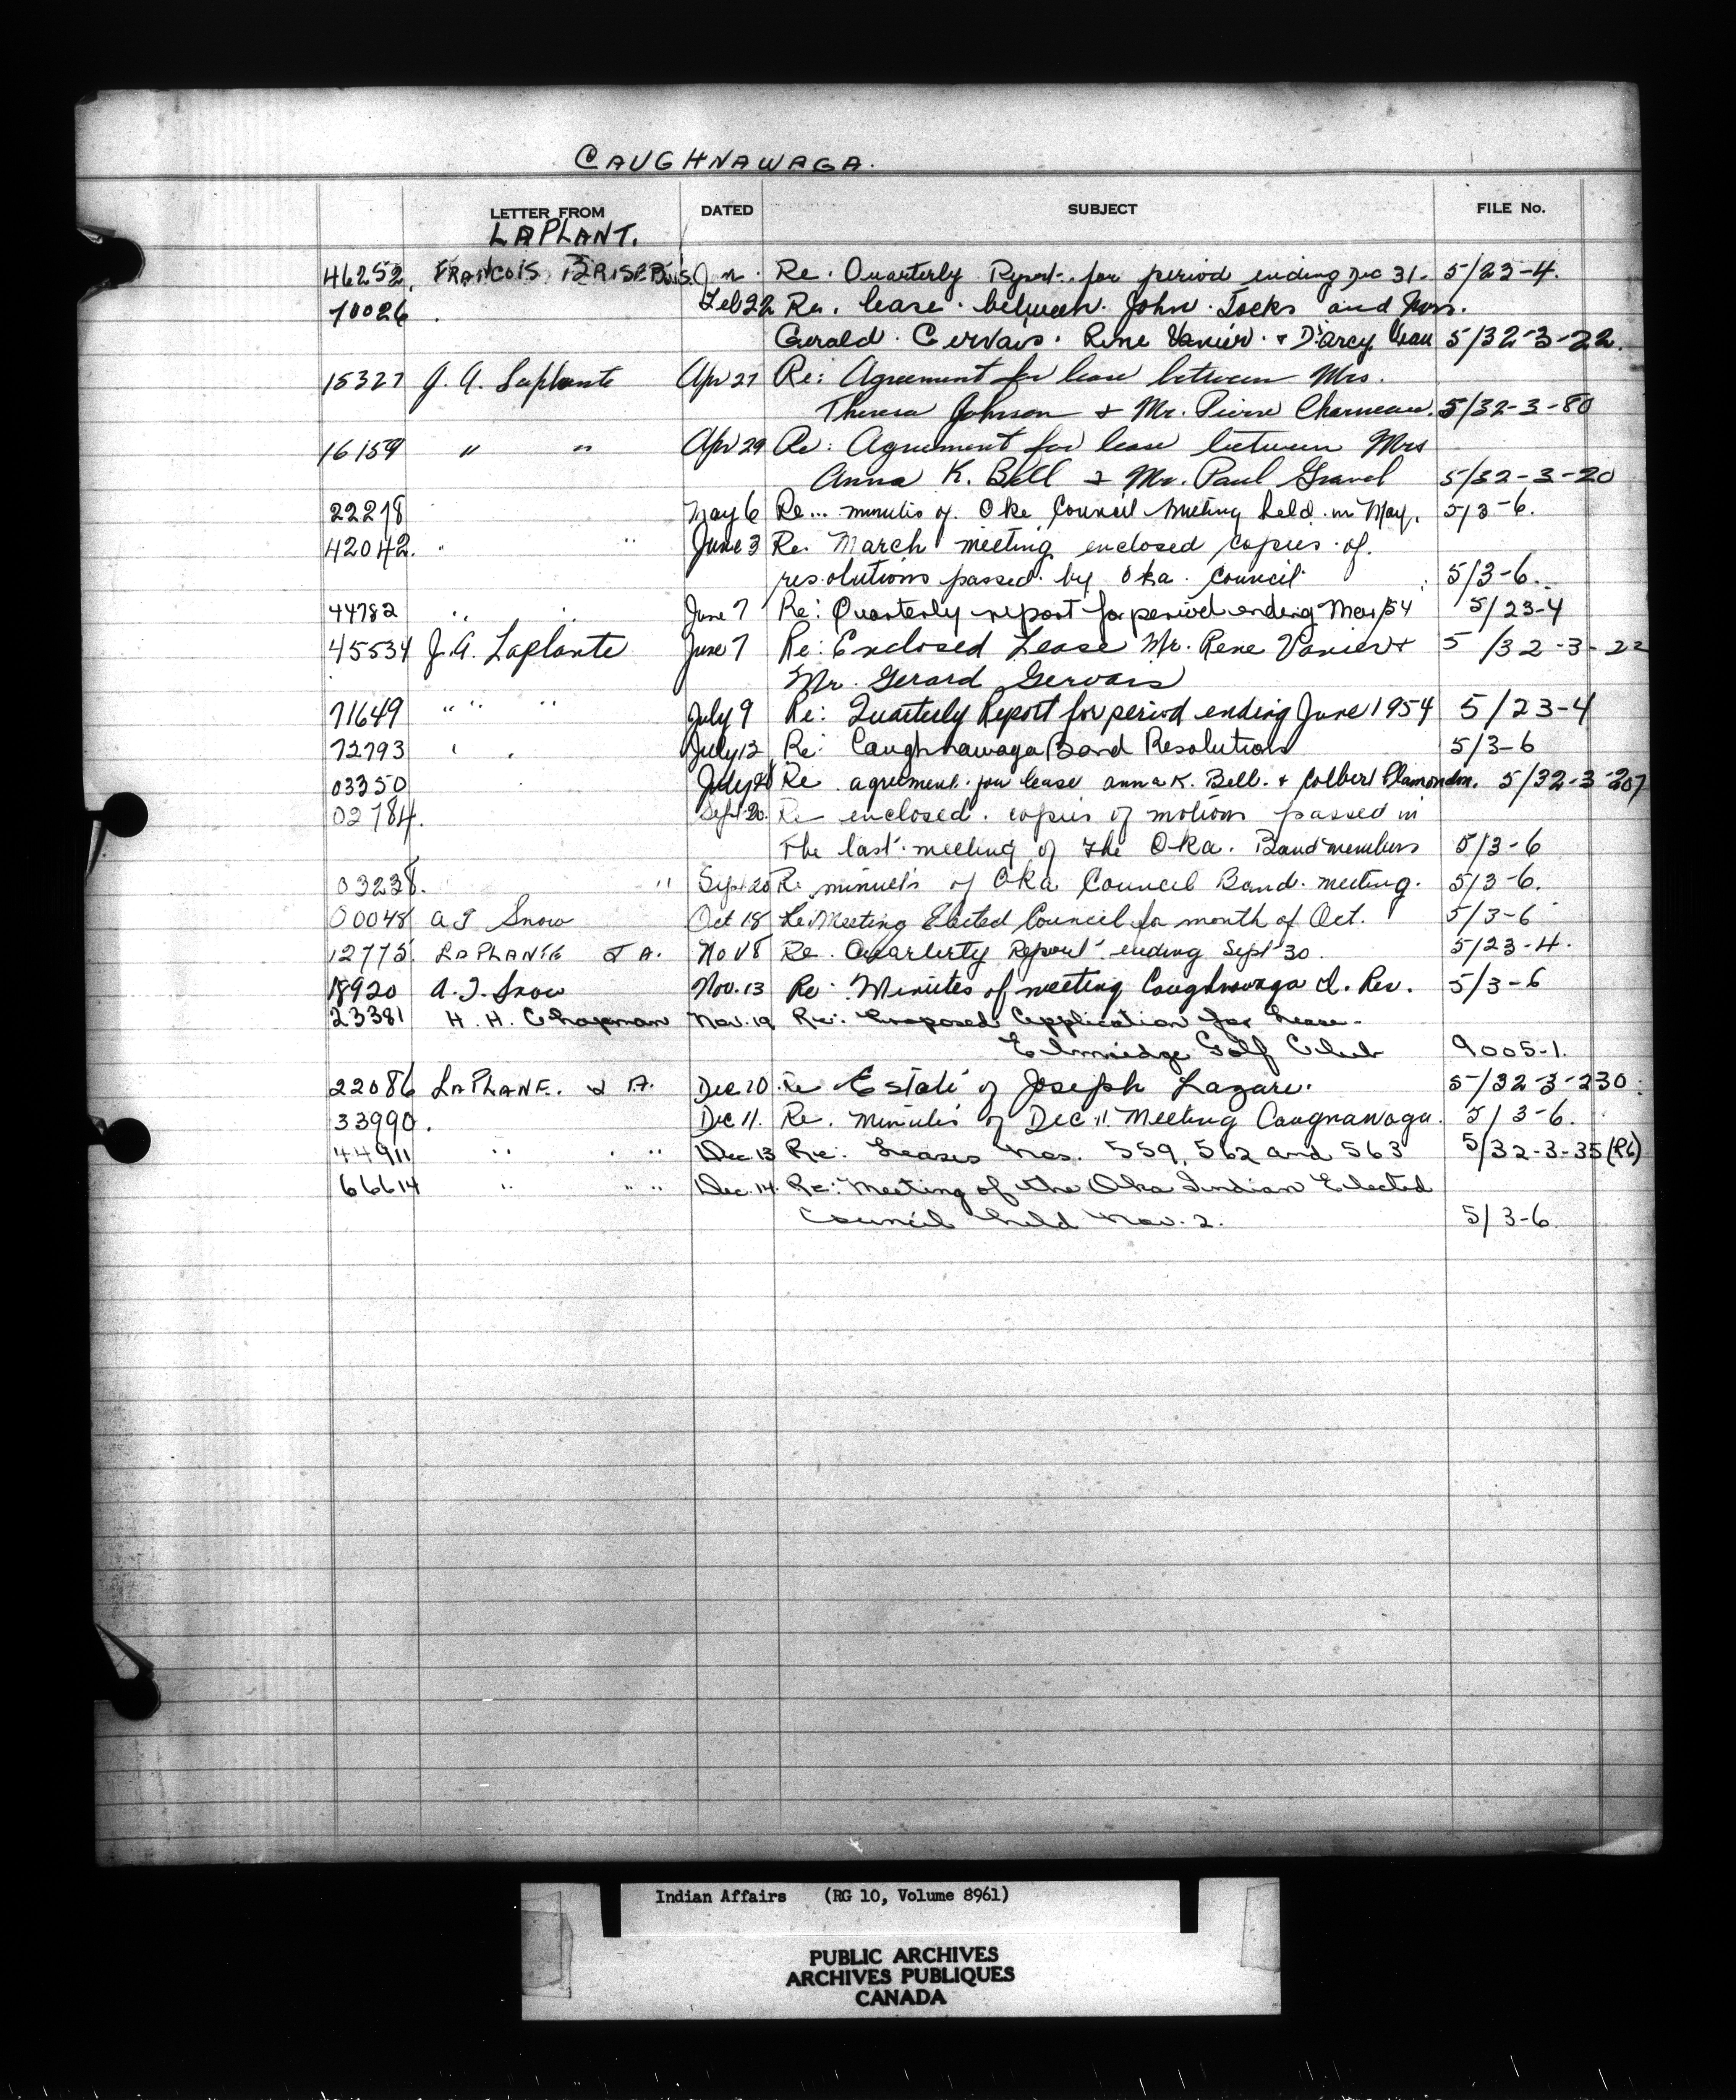 CAUGHNAWAGA.
LETTER FROM DATED SUBJECT FILE No.
LAPLANT.
46252. FRANCOIS BRISEBOIS. Jan. Re. Quarterly Report. for period ending Dec 31. 5/23-4.
70026 . Feb 22 Re. lease. between. John. Jocks and
Gerald. Gervais. Rene Vanier. & D'arcy 5/32-3-22.
15327 J. A. Laplante Apr 27 Re: Agreement for lease between Mrs.
Theresa Johnson & Mr. Pierre Charneau. 5/32-3-80
16159 " " Apr 29 Re: Agreement for lease between Mrs
Anna K. Bell & Mr. Paul Gravel 5/32-3-20
22278 May 6 Re... minutes of. Oke Council Meeting held in May. 5/3-6.
42042. " " June 3 Re. March meeting enclosed copies of.
resolutions passed. by Oka. Council. 5/3-6.
44782 " . June 7 Re: Quarterly report for period ending Mar/54 5/23-4
45534 J. A. Laplante June 7 Re: Enclosed Lease Mr. Rene Vanier & 5/32-3-22
Mr. Gerard Gervais
71649 " " " July 9 Re: Quarterly Report for period ending June 1954 5/23-4
72793 " . July 12 Re: Caughnawaga Band Resolution 5/3-6
03350 July Re agreement. for lease anna K. Bell. & Colbert Plamondon. 5/32-3-207
02784. Sept. 20. Re enclosed. copies of motions passed in
The last. meeting of the Oka. Band members 5/3-6
03238. " Sept 20 Re minuets of Oka Council Band. meeting. 5/3-6.
00048 A T Snow Oct 18 Re: Meeting Elected Council for month of Oct. 5/3-6
12775. LAPLANTE J A. Nov 8 Re. Quarterly Report ending Sept 30. 5/23-4.
18920 A. T. Snow Nov. 13 Re: Minutes of meeting Caughnawaga I. Res. 5/3-6
23381 H. H. Chapman Nov. 19 Re: Proposed Application for Lease-
Elmridge Golf Club 9005-1.
22086 LAPLANE. J A. Dec. 10 Re Estate of Joseph Lazare. 5/32-3-230.
33990. Dec 11. Re. minutes of Dec 11 Meeting Caugnawaga. 5/3-6.
44911 " . " Dec. 13 Re: Leases Nos. 559, 562 and 563 5/32-3-35(R6)
66614 " " " Dec. 14. Re: Meeting of the Oka Indian Elected
Council held Nov. 2. 5/3-6.
Indian Affairs (RG 10, Volume 8961)
PUBLIC ARCHIVES
ARCHIVES PUBLIQUES
CANADA